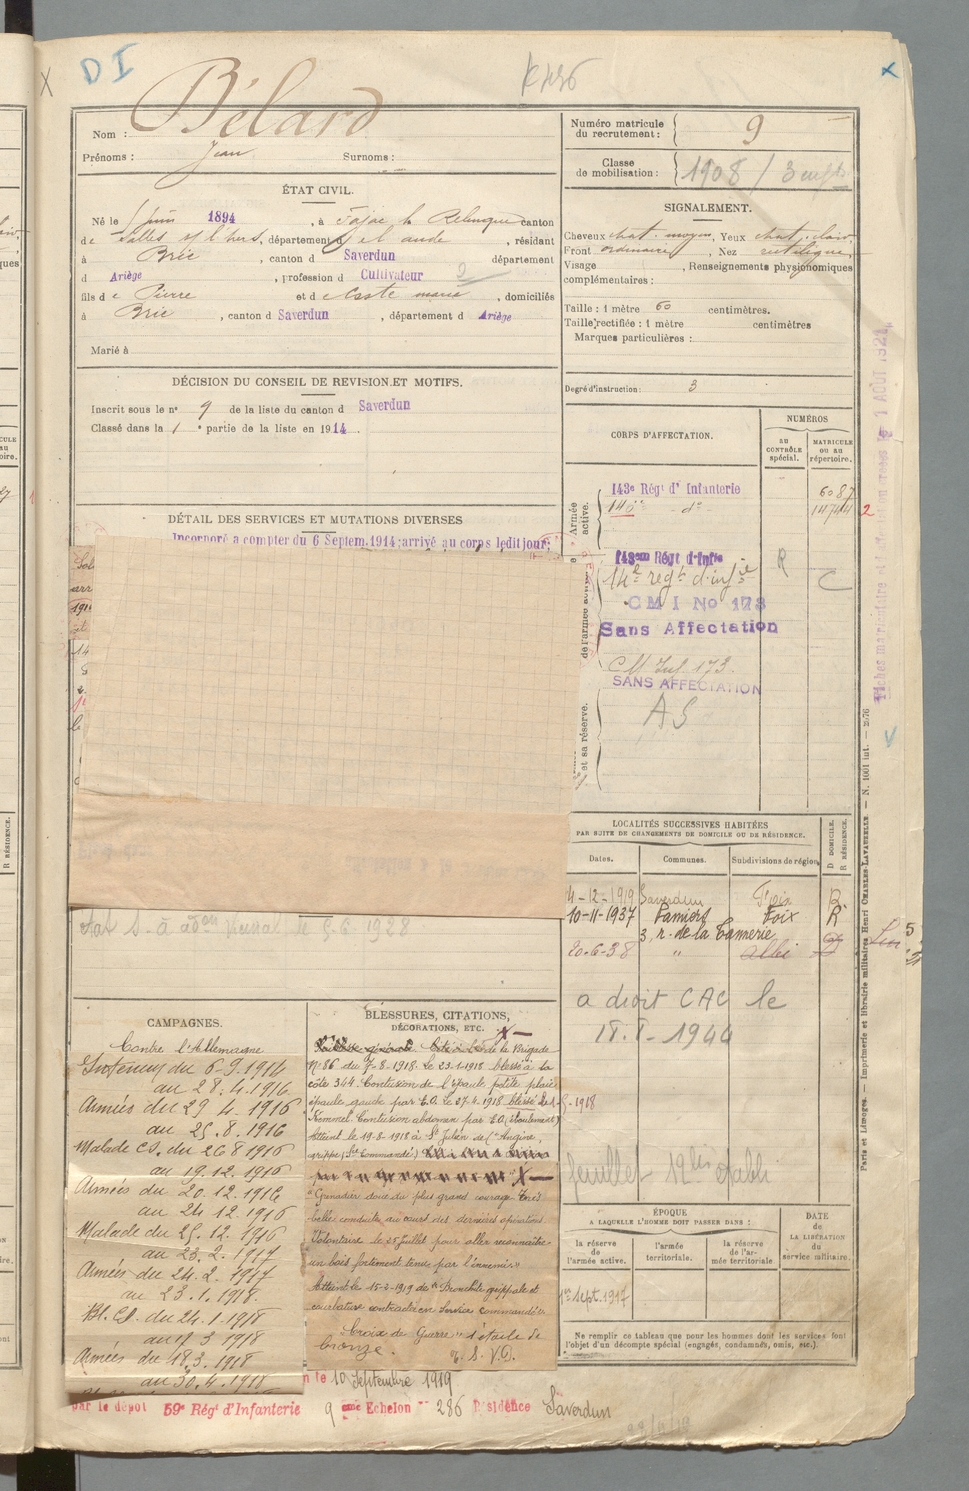 DI
Bélard
Nom :
Prénoms : Jean Surnoms :
Numéro matricule
du recrutement : 9
Classe
de mobilisation : 1908 /
ÉTAT CIVIL.
Né le juin 1894, à Fajac la Relenque canton
de Salles s/ l'hers, département de l'aude, résidant
à Brie, canton d Saverdun département
d Ariège, profession d Cultivateur
fils de Pierre et de Caste marie, domiciliés
à Brie, canton d Saverdun, département d Ariège
Marié à
SIGNALEMENT.
Cheveux chat. moyen, Yeux chat. clair,
Front ordinaire, Nez rectiligne,
Visage , Renseignements physionomiques
complémentaires :
Taille : 1 mètre 60 centimètres.
Taille rectifiée : 1 mètre centimètres
Marques particulières :
Degré d'instruction : 3
DÉCISION DU CONSEIL DE REVISION ET MOTIFS.
Inscrit sous le n° 9 de la liste du canton d Saverdun
Classé dans la 1e partie de la liste en 1914.
DÉTAIL DES SERVICES ET MUTATIONS DIVERSES
Incorporé a compter du 6 Septem. 1914; arrivé au corps ledit jour;
CORPS D'AFFECTATION.
NUMÉROS
au
CONTRÔLE
spécial.
MATRICULE
ou au
répertoire.
Armée
active.
143e Régt d'Infanterie 6087
146e - do - 2
143em Régt d'Infie R
14e regt d'infie C
CMI No 173
Sans Affectation
CM Inf 173
SANS AFFECTATION
AS
et sa réserve.
LOCALITÉS SUCCESSIVES HABITÉES
PAR SUITE DE CHANGEMENTS DE DOMICILE OU DE RÉSIDENCE.
Dates. Communes. Subdivisions de région.
D DOMICILE.
R RÉSIDENCE.
4-12-1919 Saverdun Foix R
10-11-1937 Pamiers Foix R
3, r. de la Tannerie
20-6-38 " Albi
a droit CAC le
18.I-1944
feuillet 12bis établi
CAMPAGNES.
Contre l'Allemagne
Intérieur du 6-9.1914
au 28.4.1916
Armées du 29 4.1916
au 25.8.1916
Malade CS. du 26 8 1916
au 19.12.1916
Armées du 20.12.1916
au 24 12.1916
Malade du 25.12.1916
au 23.2.1917
Armées du 24.2.1917
au 23.1.1918
Bl. CS. du 24.1.1918
au 17 3 1918
Armées du 18.3.1918
au 30.4.1918
BLESSURES, CITATIONS,
DÉCORATIONS, ETC.
Cité à l'ordre de la Brigade
N° 86 du 7-8-1918. Le 23-1-1918 blessé à la
côte 344. Contusion de l'épaule petite plaie
épaule gauche par E.O. Le 27-4-1918 blessé
Kemmel. Contusion abdomen par E.O. (éboulement)
Atteint le 19-8-1918 à St Julien de (" Angine,
grippe, (Sce Commandé)
"Grenadier doué du plus grand courage. Très
belle conduite au cours des dernières opérations
Volontaire le 25 Juillet pour aller reconnaître
un bois fortement tenu par l'ennemi"
Atteint le 15-2-1919 de "Bronchite grippale et
courbature contractée en Service commandé"
"Croix de Guerre" étoile de
bronze. T. S. V. P.
ÉPOQUE
A LAQUELLE L'HOMME DOIT PASSER DANS :
la réserve
de
l'armée active.
l'armée
territoriale.
la réserve
de l'ar-
mée territoriale.
DATE
de
LA LIBÉRATION
du
service militaire.
1er Sept. 1917
Ne remplir ce tableau que pour les hommes dont les services font
l'objet d'un décompte spécial (engagés, condamnés, omis, etc.).
le 10 Septembre 1919
par le dépôt 59e Régt d'Infanterie 9 eme Echelon 286 Résidence Saverdun
Paris et Limoges. — Imprimerie et librairie militaires Henri CHARLES-LAVAUZELLE. — N. 1001 int. —